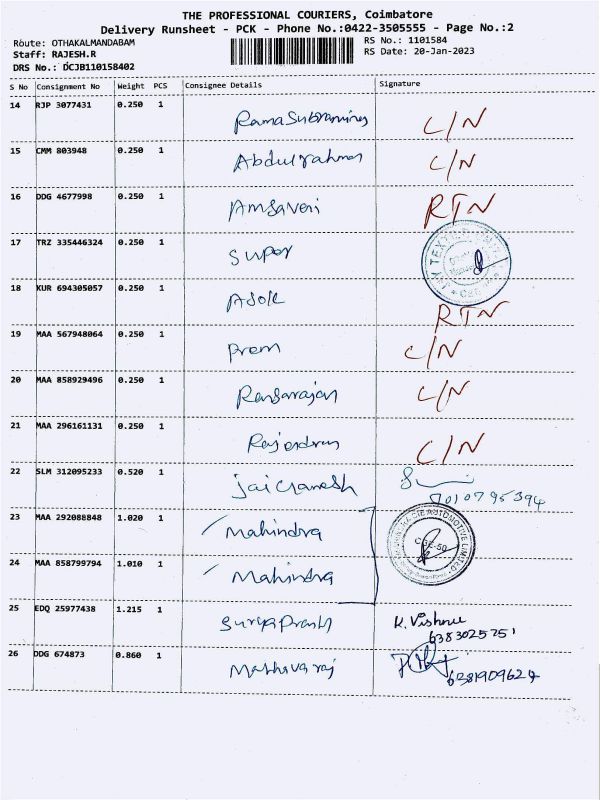 THE PROFESSIONAL COURIERS, Coimbatore
Delivery Runsheet - PCK - Phone No.:0422-3505555 - Page No.:2
Route: OTHAKALMANDABAM
RS No.: 1101584
Staff: RAJESH.R
RS Date: 20-Jan-2023
DRS No.: DCJB110158402
S No Consignment No Weight PCS Consignee Details Signature
14 RJP 3077431 0.250 1 C/N
15 CMM 803948 0.250 1 Abdulrahman C/N
16 DDG 4677998 0.250 1 Amsaveni RTN
17 TRZ 335446324 0.250 1 Super
18 KUR 694305057 0.250 1 Asok RTN
19 MAA 567948064 0.250 1 Prem C/N
20 MAA 858929496 0.250 1 Rangarajan C/N
21 MAA 296161131 0.250 1 Rajendran C/N
22 SLM 312095233 0.520 1 Jai Ganesh 7010795394
23 MAA 292088848 1.020 1 Mahindra
24 MAA 858799794 1.010 1 Mahindra
25 EDQ 25977438 1.215 1 Surya Prash K. Vishnu
6383025751
26 DDG 674873 0.860 1 Mathavaraj
6381909627